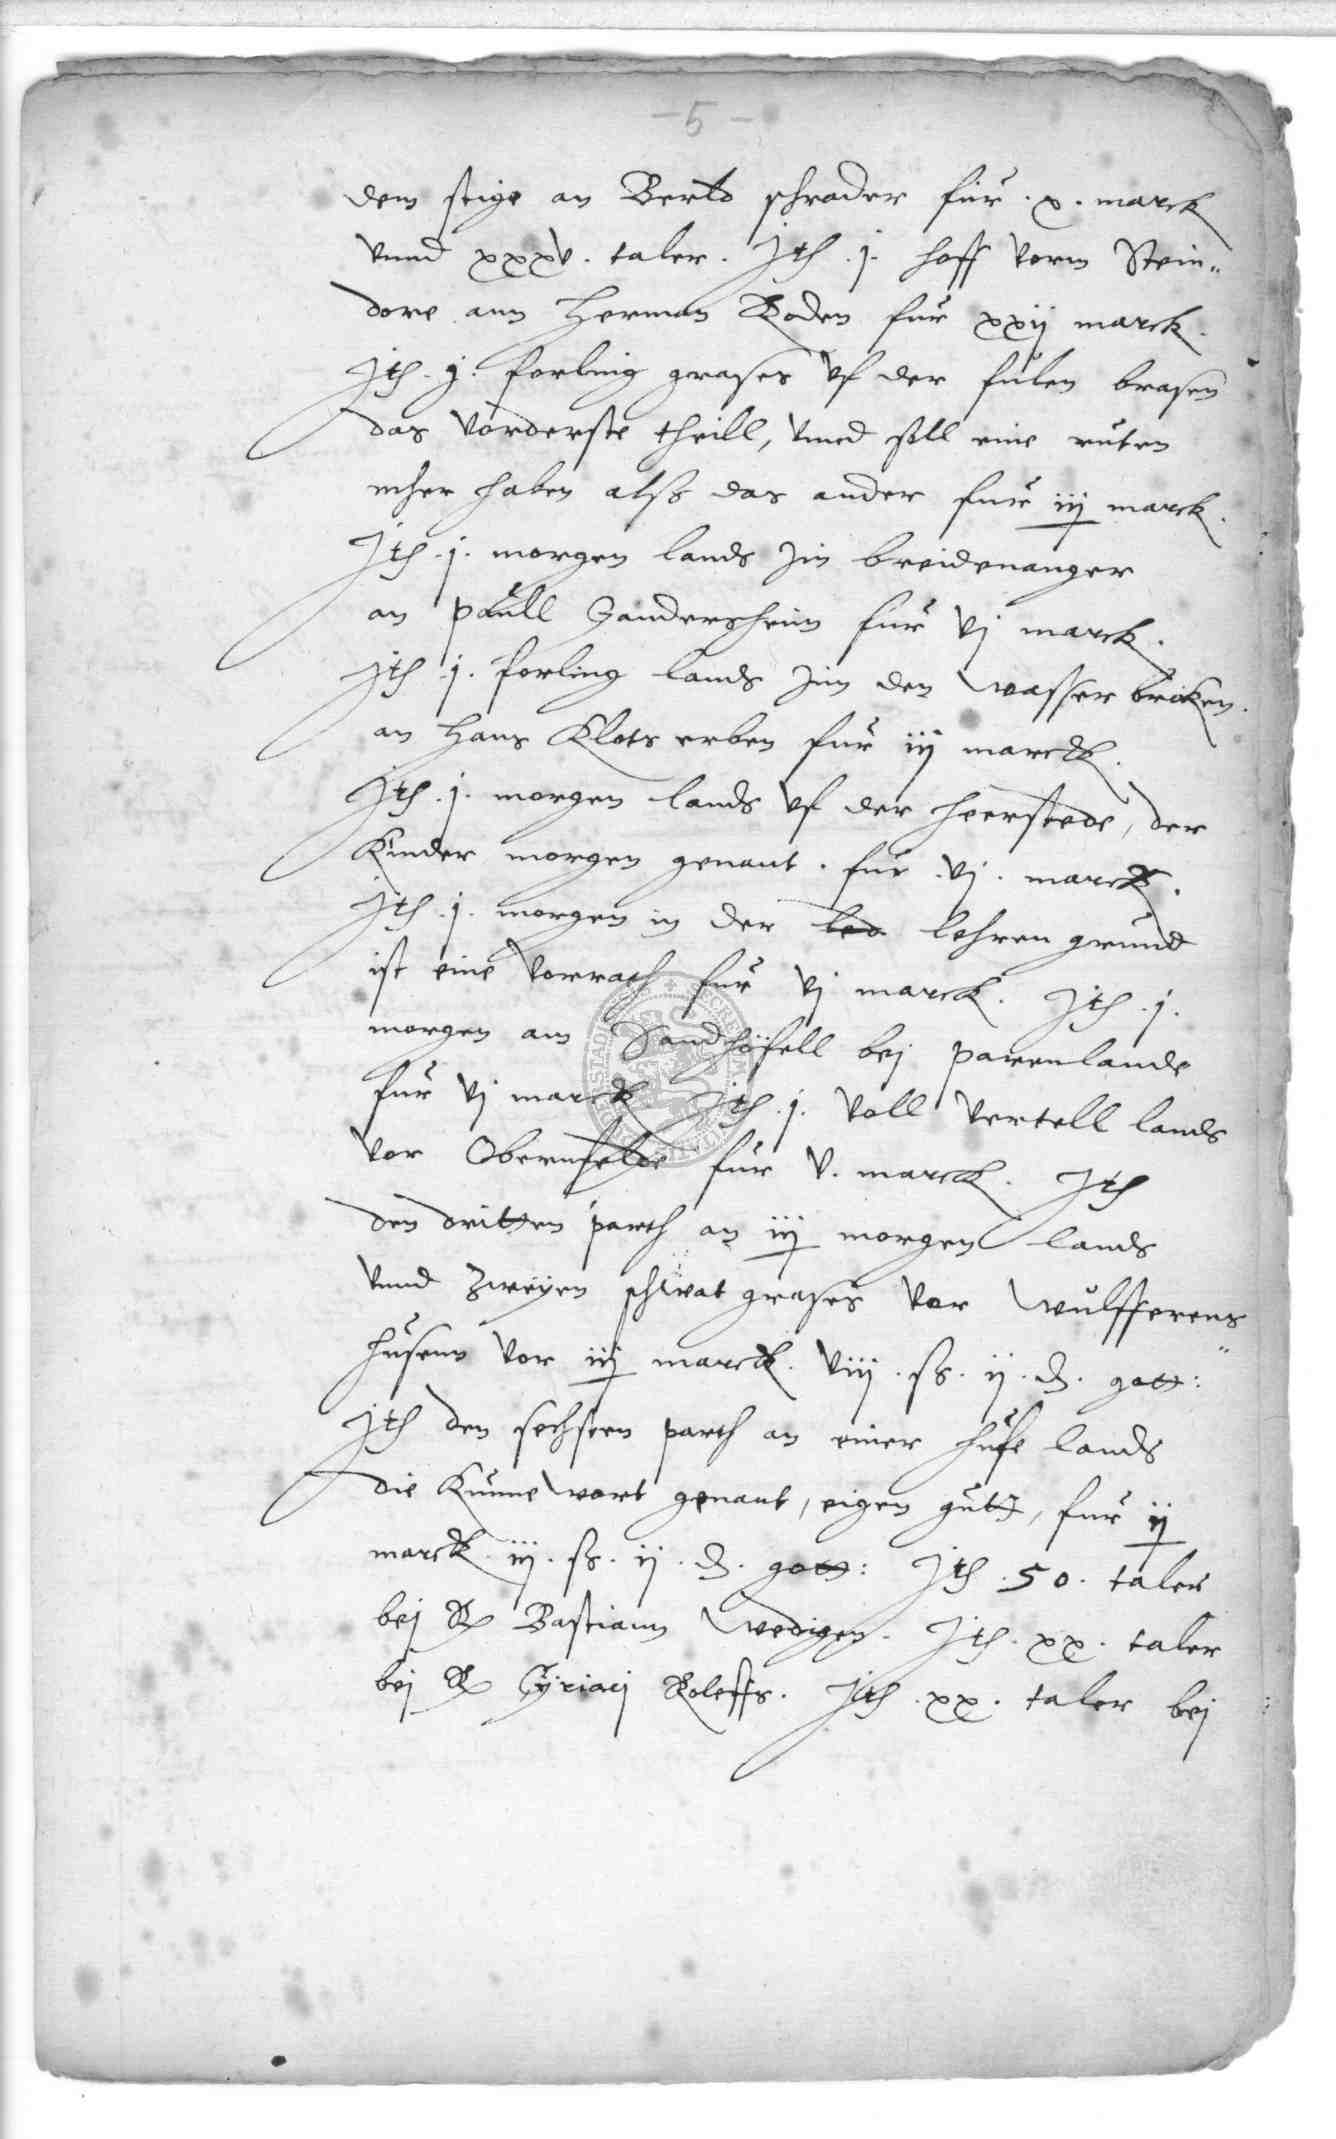 - 5 -
dem stige an Berld schrader für . x . marck
vnnd xxxv . taler . Jth . j . hoff vorm Stein„
dore ann Herman Roden für xxij marck .
Jth . j . forling grases vf der fulen brasen
das vorderste theill, vnnd soll eine ruten
mher haben alss das ander fur iij marck .
Jth . j . morgen lands Jm breidenanger
an paull Gandersheim für vj marck .
Jth . j . forling lands Jnn den wasser bricken .
an Hans Klots erben fur iij marck .
Jth . j . morgen lands vf der heerstede, der
Kinder morgen genant . für . vj . marck .
Jth . j . morgen in der leo lehren grund
ist eine vorrath für vj marck . Jth . j .
morgen am Sandhöfell bej parenlande
für vj marck Jth . j . voll vertell lands
vor Obernfelde für v . marck . Jth
den dritten parth an iij morgen lands
vnnd zweyen schwat grases vor wulfferens„
husenn vor iij marck . viij . ss . ij . d . gott :
Jth den sechsten parth an einer hufe lands
die Kunne wort genant, eigen gutt, fur ij
marck . iij . ss . ij . d . gott : Jth . 50 . taler
bej R Bastiann wedigen . Jth . xx . taler
bej R Cyriacj Roleffs . Jth . xx . taler bej